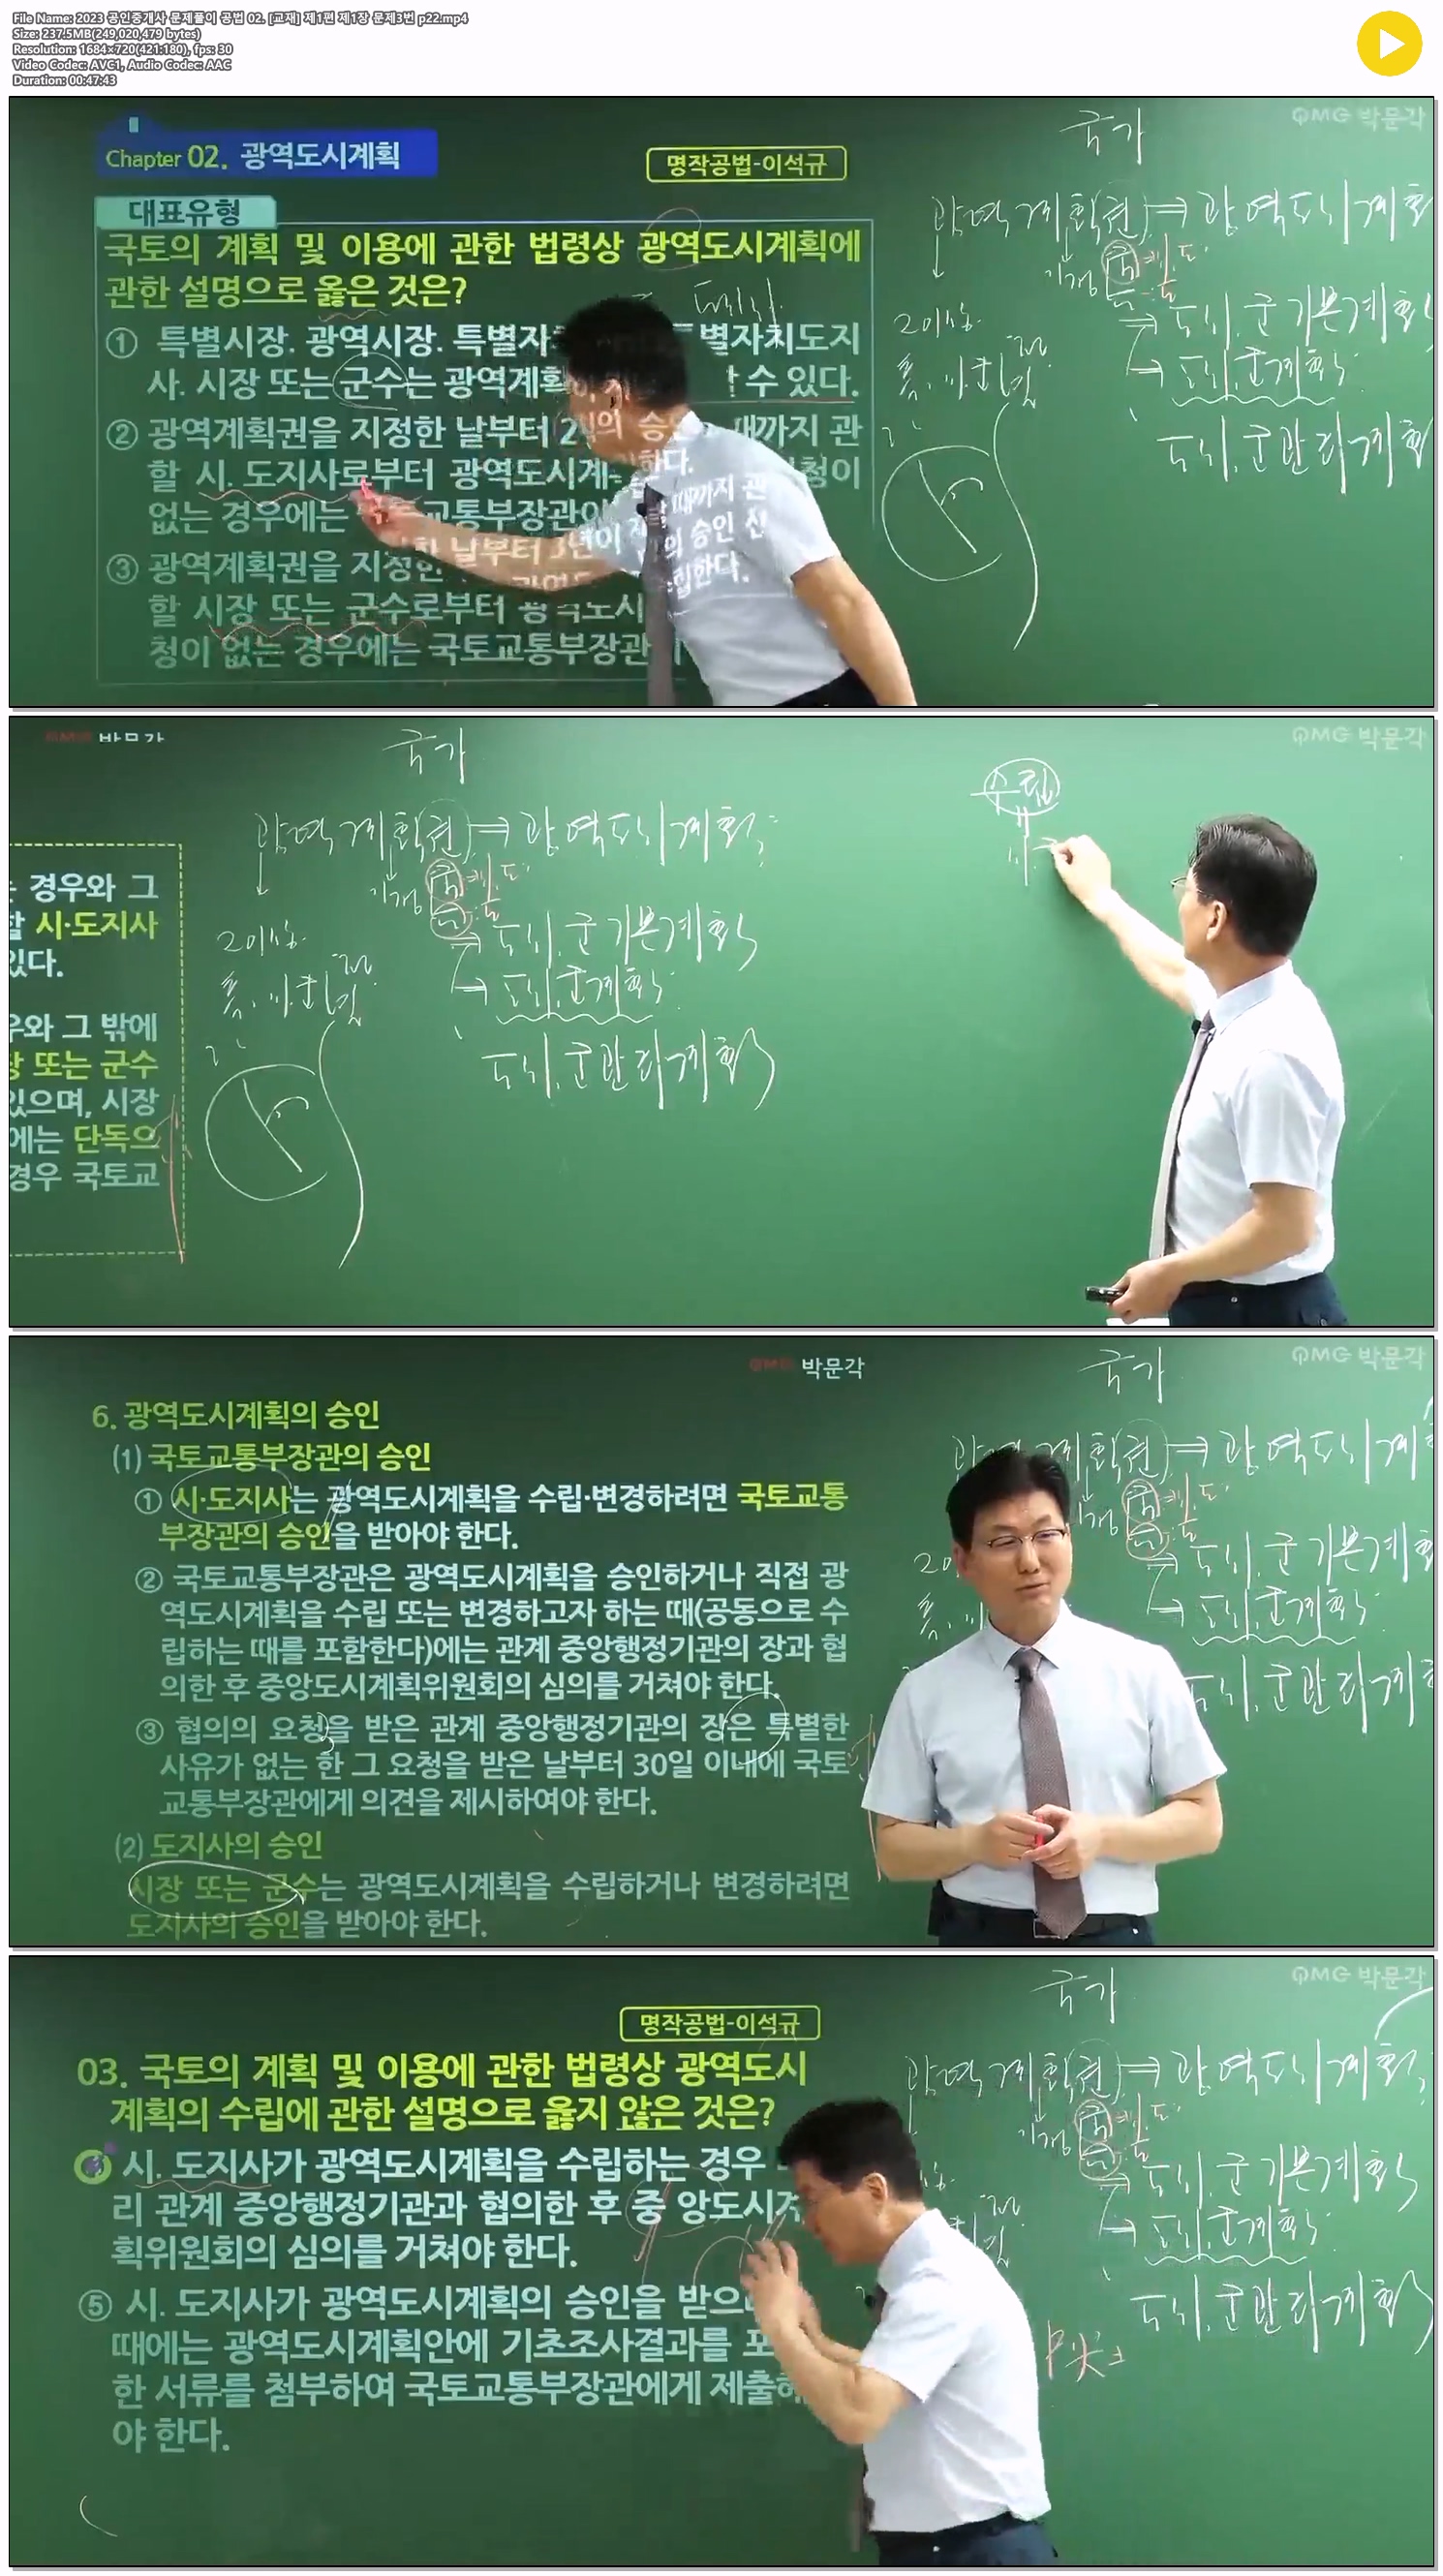 File Name: 2023 공인중개사 문제풀이 공법 02. [교재] 제1편 제1장 문제3번 p22.mp4
Size: 237.5MB(249,020,479 bytes)
Resolution: 1684×720(421:180), fps: 30
Video Codec: AVC1, Audio Codec: AAC
Duration: 00:47:43
QMG 박문각
국가
Chapter 02. 광역도시계획
명작공법-이석규
광역계획권 ⇒ 광역도시계획
대표유형
국토의 계획 및 이용에 관한 법령상 광역도시계획에
관한 설명으로 옳은 것은?
도지사
지정
도시.군기본계획
① 특별시장. 광역시장. 특별자 별자치도지
2이상
도시.군계획
사. 시장 또는 군수는 광역계획 수 있다.
도시.군관리계획
② 광역계획권을 지정한 날부터 2 때까지 관
할 시. 도지사로부터 광역도시계 청이
없는 경우에는 교통부장관이
③ 광역계획권을 지정한
할 시장 또는 군수로부터 광역도시
청이 없는 경우에는 국토교통부장관
박문각
국가
QMG 박문각
수립
광역계획권 ⇒ 광역도시계획
경우와 그
할 시·도지사
있다.
지정
2이상
도시.군기본계획
도시.군계획
우와 그 밖에
장 또는 군수
있으며, 시장
에는 단독으
경우 국토교
도시.군관리계획
QMG 박문각
국가
QMG 박문각
6. 광역도시계획의 승인
(1) 국토교통부장관의 승인
① 시·도지사는 광역도시계획을 수립·변경하려면 국토교통
부장관의 승인을 받아야 한다.
② 국토교통부장관은 광역도시계획을 승인하거나 직접 광
역도시계획을 수립 또는 변경하고자 하는 때(공동으로 수
립하는 때를 포함한다)에는 관계 중앙행정기관의 장과 협
의한 후 중앙도시계획위원회의 심의를 거쳐야 한다.
③ 협의의 요청을 받은 관계 중앙행정기관의 장은 특별한
사유가 없는 한 그 요청을 받은 날부터 30일 이내에 국토
교통부장관에게 의견을 제시하여야 한다.
(2) 도지사의 승인
시장 또는 군수는 광역도시계획을 수립하거나 변경하려면
도지사의 승인을 받아야 한다.
광역도시계
도시.군기본계획
도시.군계획
도시.군관리계
QMG 박문각
국가
명작공법-이석규
03. 국토의 계획 및 이용에 관한 법령상 광역도시
계획의 수립에 관한 설명으로 옳지 않은 것은?
시. 도지사가 광역도시계획을 수립하는 경우
리 관계 중앙행정기관과 협의한 후 중 앙도시계
획위원회의 심의를 거쳐야 한다.
⑤ 시. 도지사가 광역도시계획의 승인을 받으
때에는 광역도시계획안에 기초조사결과를 포
한 서류를 첨부하여 국토교통부장관에게 제출하
야 한다.
광역계획권 ⇒ 광역도시계획
지정
도시.군기본계획
도시.군계획
도시.군관리계획